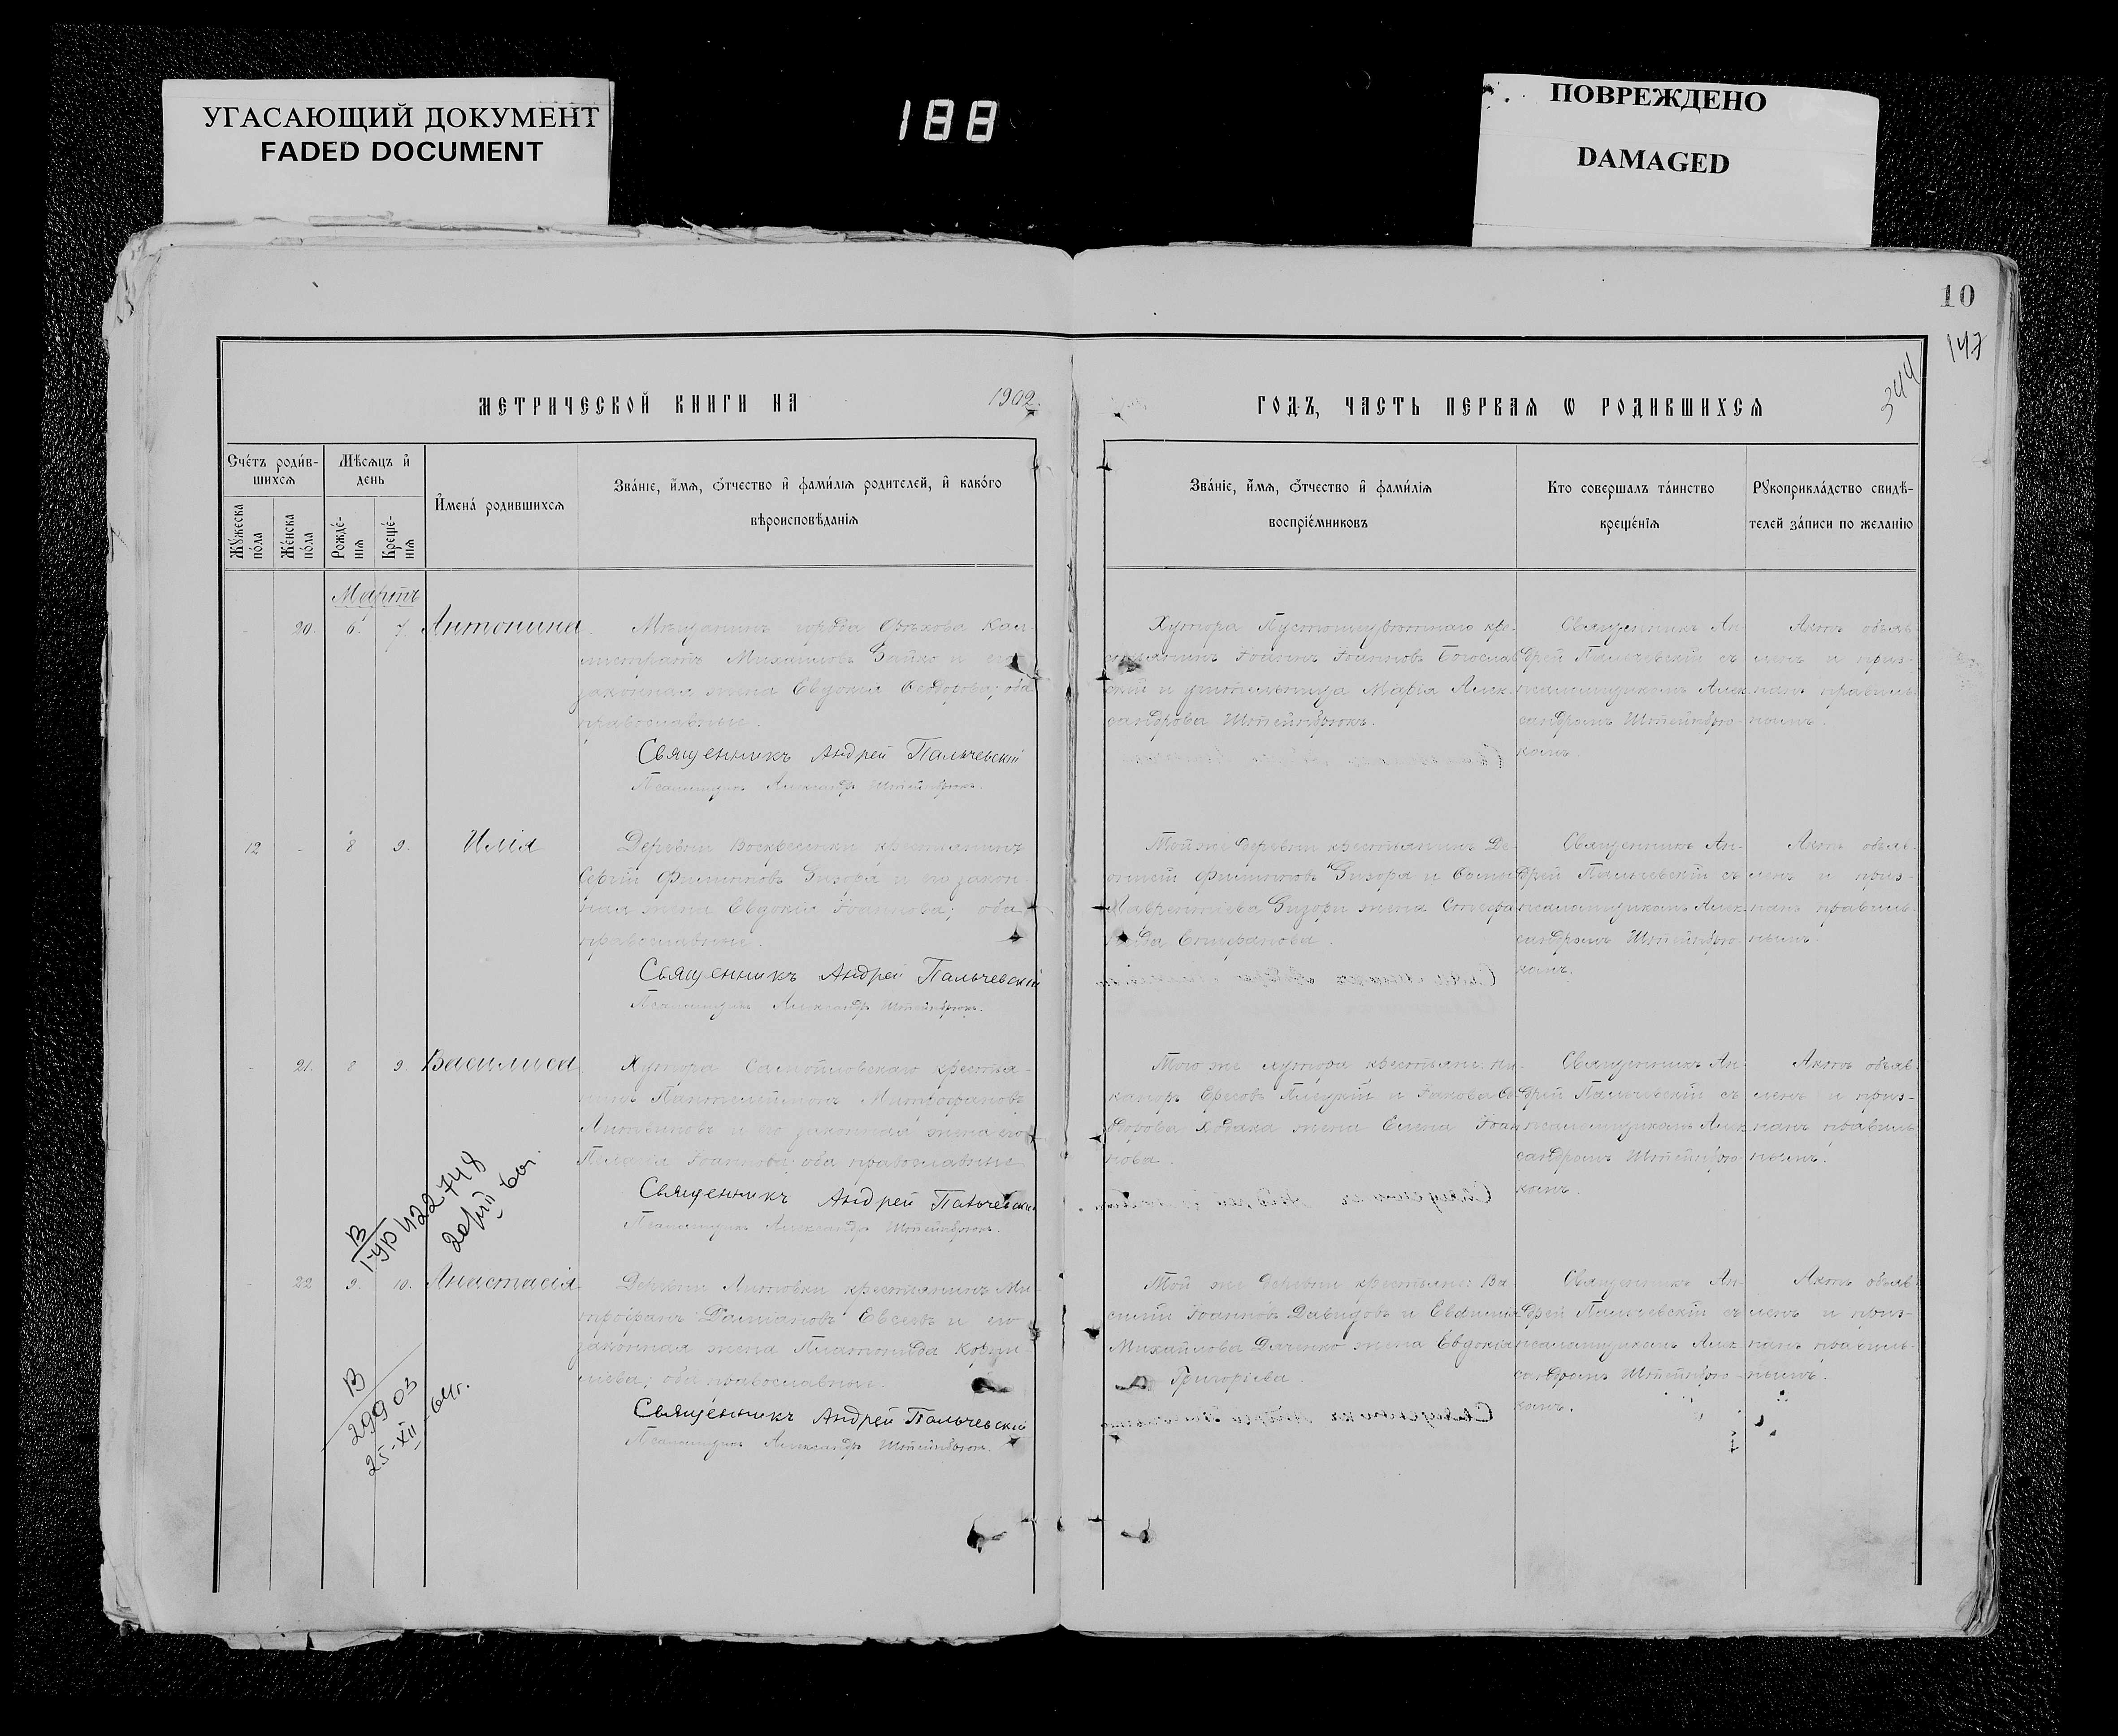 УГАСАЮЩИЙ ДОКУМЕНТ
FADED DOCUMENT
188
ПОВРЕЖДЕНО
DAMAGED
10
147
344
МЕТРИЧЕСКОЙ КНИГИ НА 1902. ГОДЪ, ЧАСТЬ ПЕРВАЯ Ѡ РОДИВШИХСЯ
Счетъ родив-
шихся
Мѣсяцъ и
день
Мужеска
пола
Женска
пола
Рожде-
нія
Креще-
нія
Имена родившихся
Званіе, имя, отчество и фамилія родителей, и какого
вѣроисповѣданія
Званіе, имя, отчество и фамилія
воспріемниковъ
Кто совершалъ таинство
крещенія
Рукоприкладство свидѣ-
телей записи по желанію
Мартъ
- 20. 6. 7. Антонина.
Мѣщанинъ города Орѣхова Кал-
листратъ Михаиловъ Зайко и его
законная жена Евдокія Ѳеодорова; оба
православные.
Священникъ Андрей Пальчевскій
Псаломщикъ Александръ Штейнбрюкъ.
Хутора крес-
тьянинъ Іоаннъ Іоанновъ Богослав-
скій и учительница Марія Алек-
сандрова Штейнбрюкъ.
Священникъ Ан-
дрей Пальчевскій съ
псаломщикомъ Алек-
сандромъ Штейнбрю-
комъ.
Актъ объяв-
ленъ и приз-
нанъ правиль-
нымъ.
12 - 8 9. Илія
Деревни Воскресенки крестьянинъ
Сергій Филиповъ Бизора и его закон-
ная жена Евдокія Іоаннова; оба
православные.
Священникъ Андрей Пальчевскій
Псаломщикъ Александръ Штейнбрюкъ.
Той же деревни крестьянинъ Де-
Лаврентіева жена Стефа-
нида Стефанова.
Священникъ Ан-
дрей Пальчевскій съ
псаломщикомъ Алек-
сандромъ Штейнбрю-
комъ.
Актъ объяв-
ленъ и приз-
нанъ правиль-
нымъ.
- 21. 8 9. Василиса
Хутора Самойловскаго крестья-
нинъ Пантелеймонъ Митрофановъ
Литвиновъ и его законная жена его
Пелагія Іоаннова; оба православные
Священникъ Андрей Пальчевскій
Псаломщикъ Александръ Штейнбрюкъ.
Того же хутора крестьяне: Ни-
каноръ и Іакова Ѳе-
дорова жена Елена Іоан-
нова.
Священникъ Ан-
дрей Пальчевскій съ
псаломщикомъ Алек-
сандромъ Штейнбрю-
комъ.
Актъ объяв-
ленъ и приз-
нанъ правиль-
нымъ.
- 22 9. 10. Анастасія
Деревни Литовки крестьянинъ Ми-
трофанъ Даміановъ Евсеевъ и его
законная жена Платонида Корни-
ліева; оба православные.
Священникъ Андрей Пальчевскій
Псаломщикъ Александръ Штейнбрюкъ.
Той же деревни крестьяне: Ва-
силій Іоанновъ Давидовъ и Евфимія
Михайлова Дяченко жена Евдокія
Григоріева.
Священникъ Ан-
дрей Пальчевскій съ
псаломщикомъ Алек-
сандромъ Штейнбрю-
комъ.
Актъ объяв-
ленъ и приз-
нанъ правиль-
нымъ.
В
422748
В
29903
25-XII-64г.